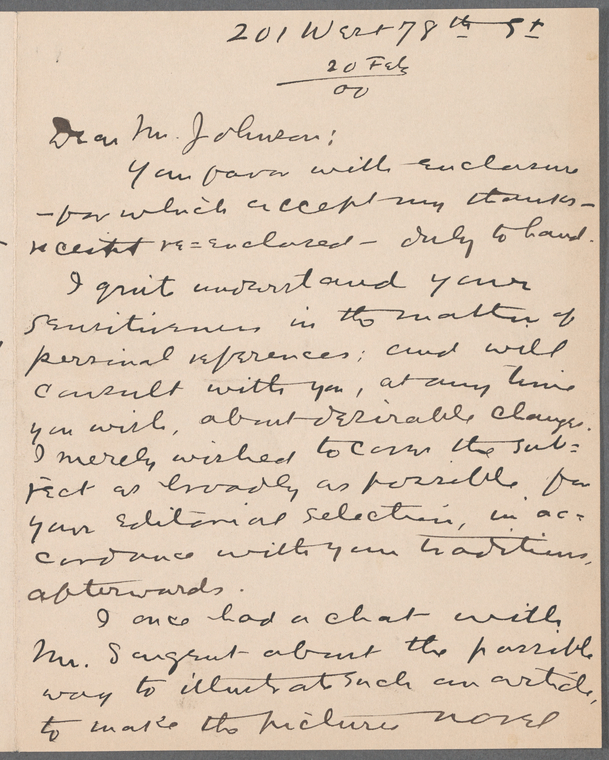 201 West 78th St
20 Feb
00
Dear Mr. Johnson:
Your favor with enclosure
— for which accept my thanks —
receipt re=enclosed — duly to hand.
I quite understand your
sensitiveness in the matter of
personal references; and will
consult with you, at any time
you wish, about desirable changes.
I merely wished to cover the sub=
ject as broadly as possible for
your Editorial selection, in ac=
cordance with your traditions,
afterwards.
I once had a chat with
Mr. Sargent about the possible
way to illustrate such an article,
to make the pictures novel